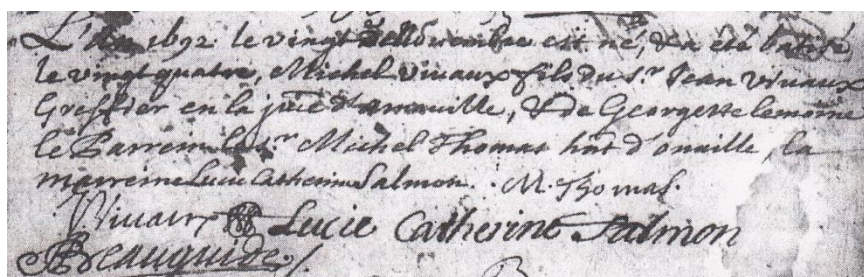 L'An 1692 le vingt novembre est né, & a été batisé
le vingt quatre, Michel vivaux fils du Sr. Jean vivaux
Greffier en la jurie d'amauville, & de Georgette lemoine
le Parrein le sr. Michel Thomas hnt d'onaille, la
marreine Lucie Catherine Salmon. M. Thomas.
Vivaux Lucie Catherine Salmon
Beauguide